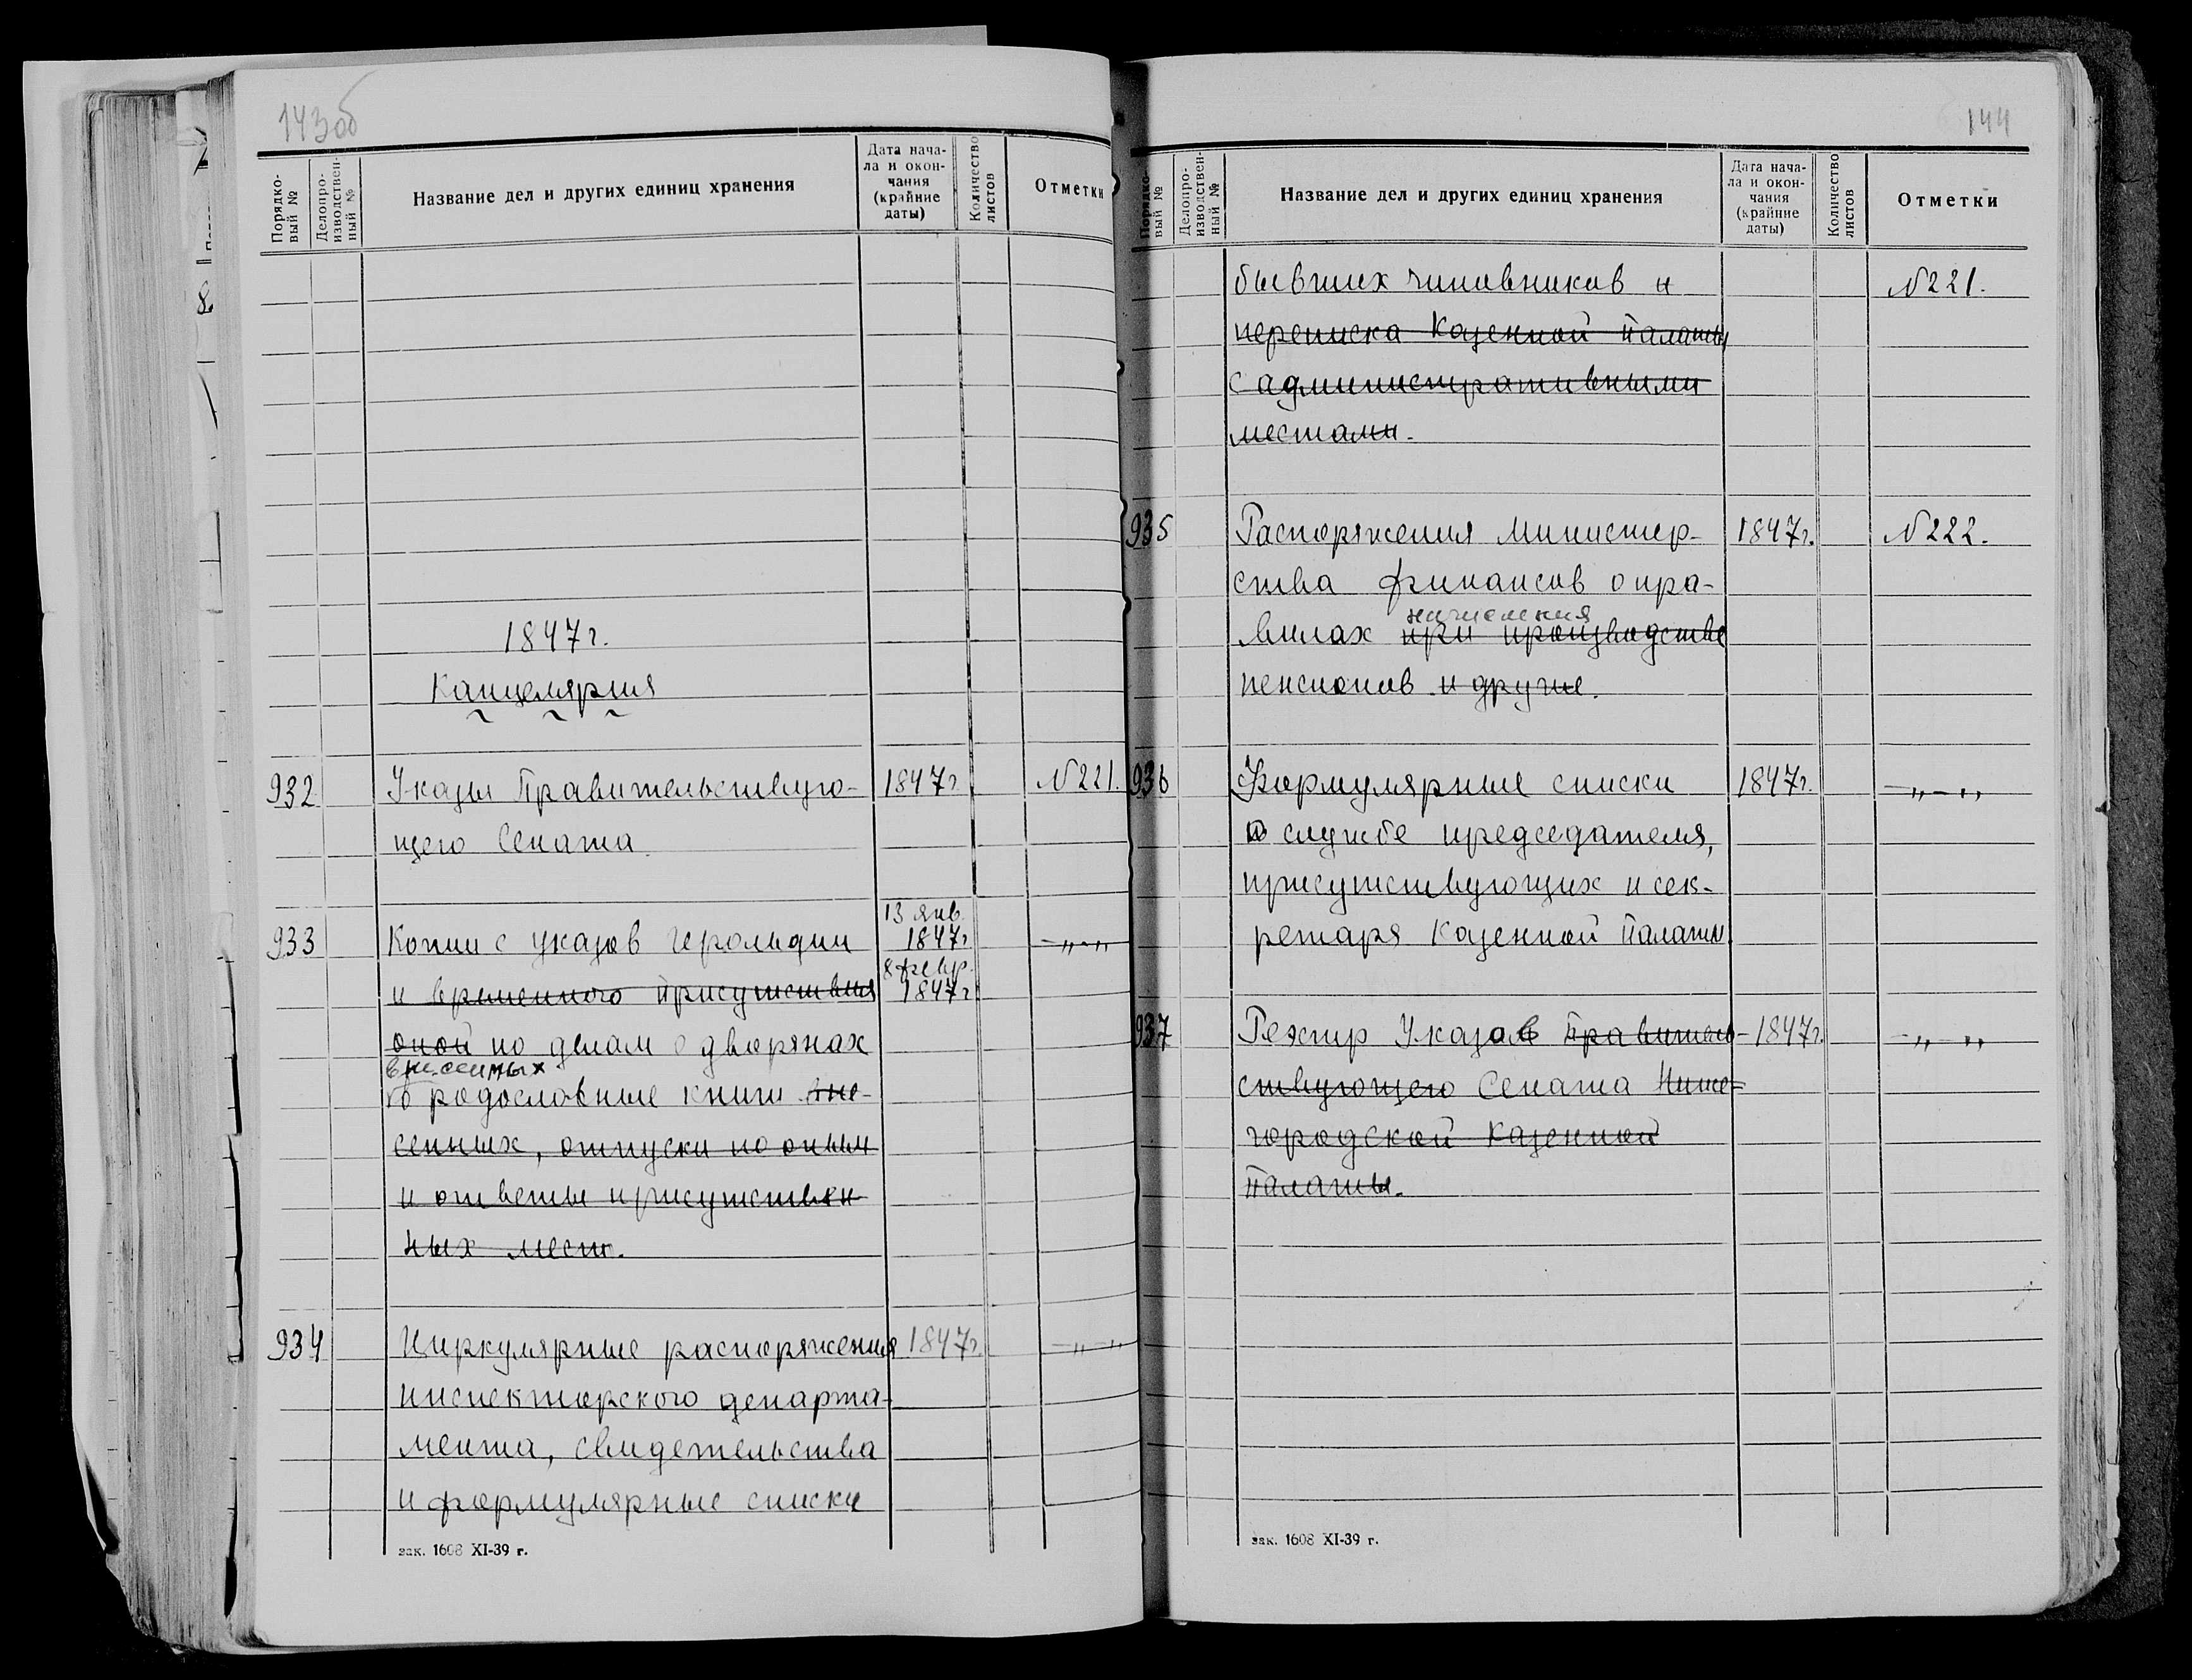 143об
Порядко-
вый №
Делопро-
изводствен-
ный №
Название дел и других единиц хранения
Дата нача-
ла и окон-
чания
(крайние
даты)
Количество
листов
Отметки
1847г.
Канцелярия
932 Указы Правительствую- 1847г. N221.
щего Сената
933 Копии с указов Герольдии 13 янв. 1847г. —„—„
и временного присутствия 8 февр. 1847г
оной по делам о дворянах
внесенных
в родословные книги вне-
сенных, отпуски по оным
и ответы присутствен
ных мест.
934 Циркулярные распоряжения 1847г. —„—„
инспекторского департа-
мента, свидетельства
и формулярные списки
зак. 1608 XI-39 г.
144
Порядко-
вый №
Делопро-
изводствен-
ный №
Название дел и других единиц хранения
Дата нача-
ла и окон-
чания
(крайние
даты)
Количество
листов
Отметки
бывших чиновников и N221.
переписка Казенной палаты
с административными
местами.
935 Распоряжения Министер- 1847г. N222.
ства финансов о пра-
начисления
вилах при производстве
пенсионов и другие.
936 Формулярные списки 1847г. —„—„
о службе председателя,
присутствующих и сек-
ретаря Казенной палаты
937 Реэстр Указов Правитель- 1847г. —„—„
ствующего Сената Ниже-
городской Казенной
Палаты.
зак. 1608 XI-39 г.